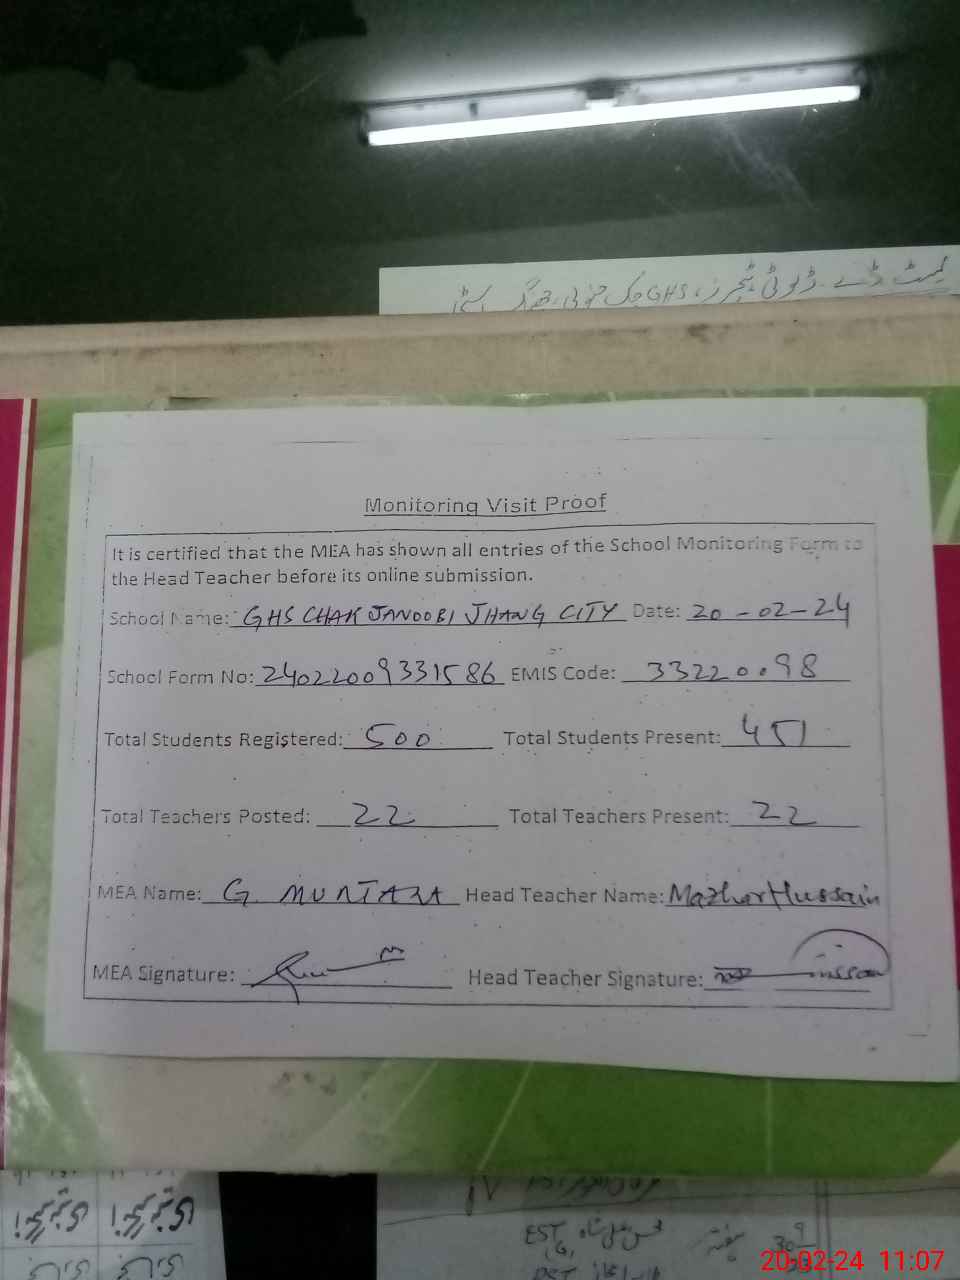 GHS
Monitoring Visit Proof
It is certified that the MEA has shown all entries of the School Monitoring Form to
the Head Teacher before its online submission.
School Name: GHS CHAK JANOOBI JHANG CITY Date: 20-02-24
School Form No: 24022009331586 EMIS Code: 33220098
Total Students Registered: 500 Total Students Present: 451
Total Teachers Posted: 22 Total Teachers Present: 22
MEA Name: G. MURTAZA Head Teacher Name: Mazhar Hussain
MEA Signature: Head Teacher Signature:
EST
20-02-24 11:07